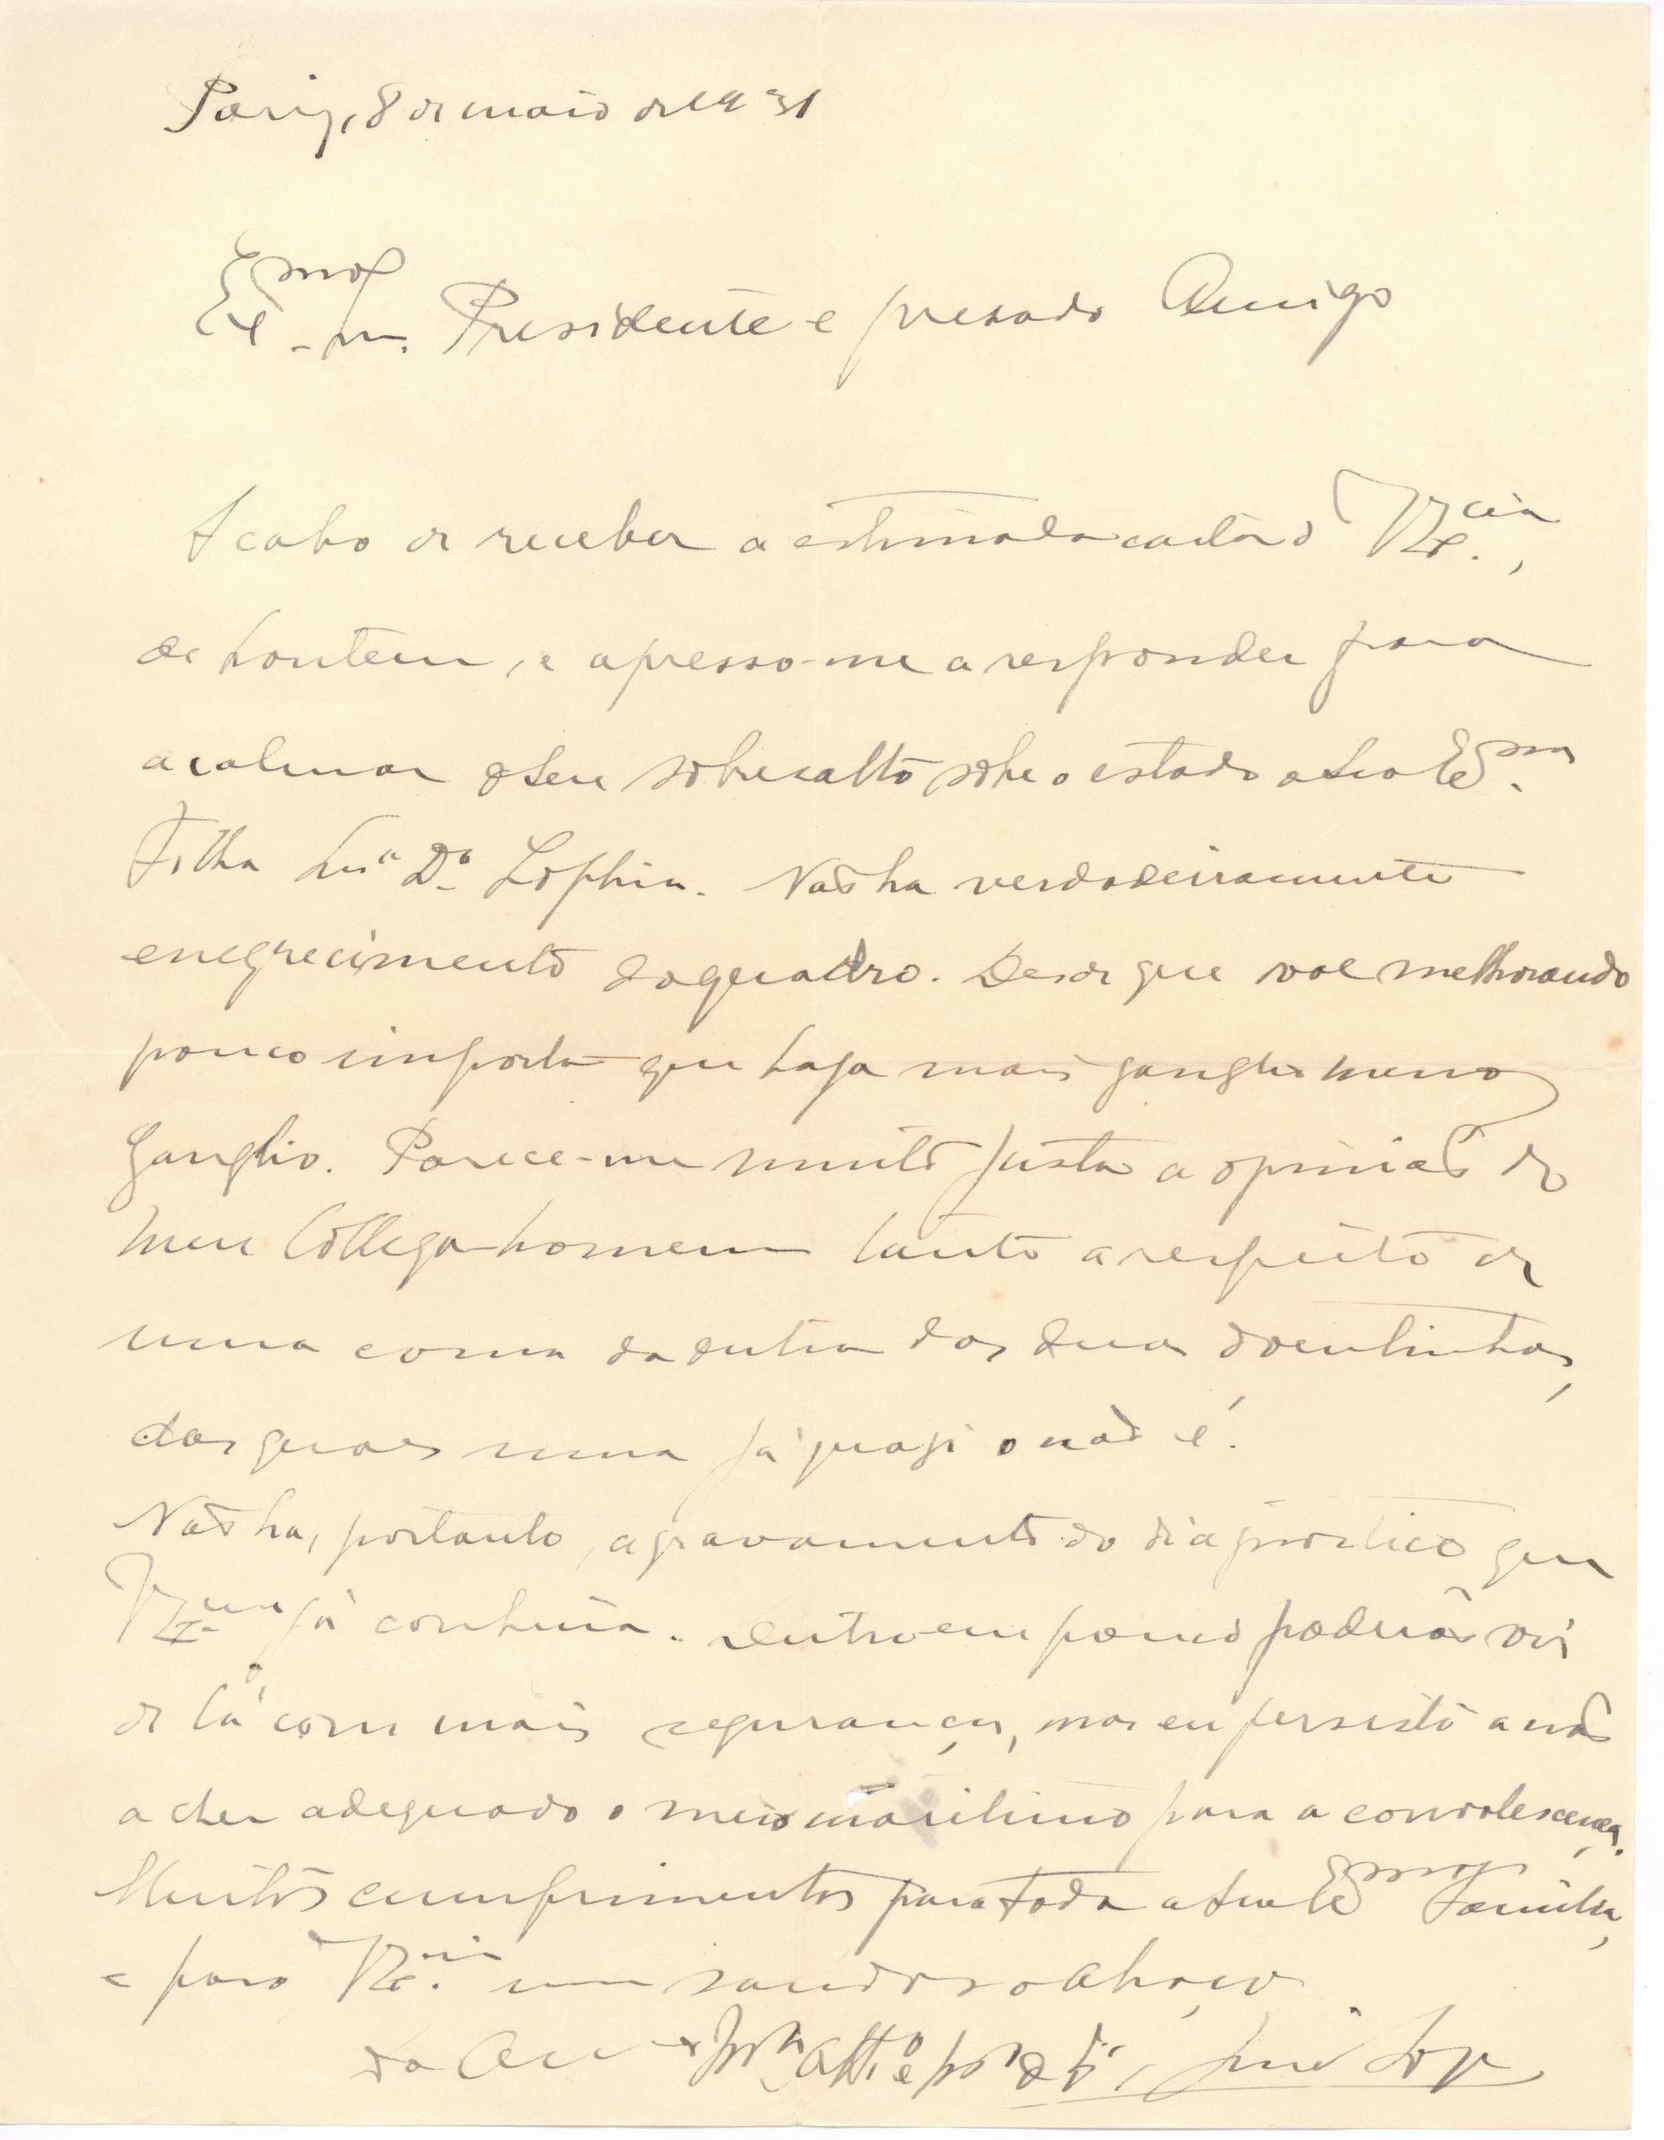 Pariz, 8 de maio de 1931
Exmo Snr. Presidente e presado Amigo
Acabo de receber a estimada carta d V Excia.,
de hontem, e apresso-me a responder para
acalmar o seu sobresalto sobre o estado a Sua Exma.
Filha Snra Da. Sophia. Não ha verdadeiramente
enegrecimento do quadro. Desde que vae melhorando
pouco importa que haja mais ganglio menos
ganglio. Parece-me muito justa a opinião do
meu Collega homem tanto a respeito de
uma como da outra das duas doentinhas,
das quaes uma já quasi o não é.
Não ha, portanto, agravamento do diagnostico que
V Excia já conhecia. Dentro em pouco poderão vir
de lá com mais segurança, mas eu persisto a não
achar adequado o meio maritimo para a convalescença.
Muitos cumprimentos para toda a sua Exma Familia,
e para V Excia. um saudoso abraço
do Am